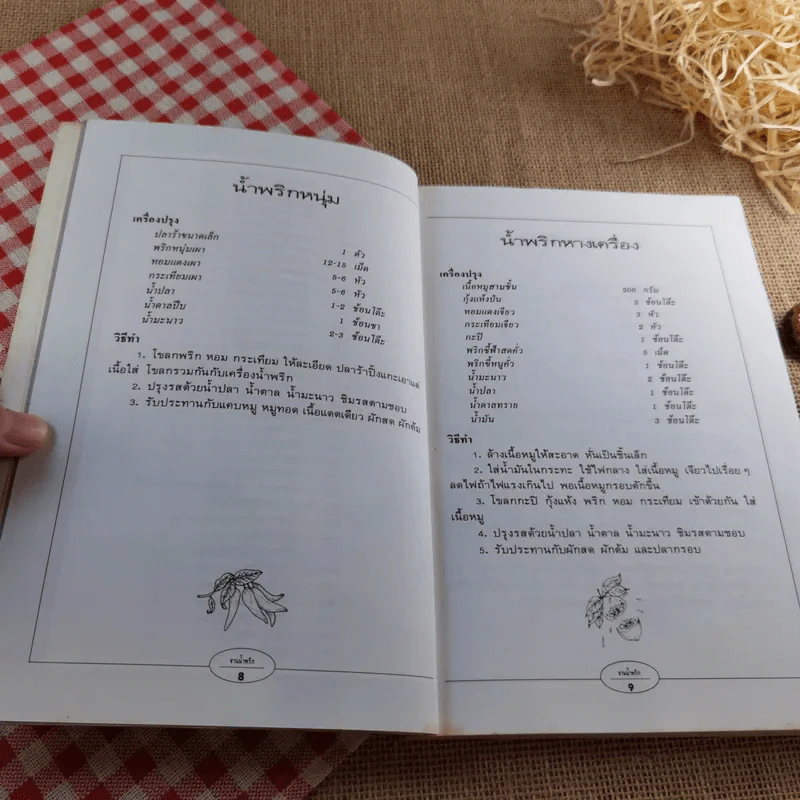 น้ำพริกหนุ่ม
เครื่องปรุง
ปลาร้าขนาดเล็ก 1 ตัว
พริกหนุ่มเผา 12-15 เม็ด
หอมแดงเผา 5-6 หัว
กระเทียมเผา 5-6 หัว
น้ำปลา 1-2 ช้อนโต๊ะ
น้ำตาลปีบ 1 ช้อนชา
น้ำมะนาว 2-3 ช้อนโต๊ะ
วิธีทำ
1. โขลกพริก หอม กระเทียม ให้ละเอียด ปลาร้าปิ้งแกะเอาแต่
เนื้อใส่ โขลกรวมกันกับเครื่องน้ำพริก
2. ปรุงรสด้วยน้ำปลา น้ำตาล น้ำมะนาว ชิมรสตามชอบ
3. รับประทานกับแคบหมู หมูทอด เนื้อแดดเดียว ผักสด ผักต้ม
งานน้ำพริก
8
น้ำพริกหางเครื่อง
เครื่องปรุง
เนื้อหมูสามชั้น 200 กรัม
กุ้งแห้งป่น 2 ช้อนโต๊ะ
หอมแดงเจียว 3 หัว
กระเทียมเจียว 2 หัว
กะปิ 1 ช้อนโต๊ะ
พริกชี้ฟ้าสดคั่ว 5 เม็ด
พริกขี้หนูคั่ว 1 ช้อนโต๊ะ
น้ำมะนาว 2 ช้อนโต๊ะ
น้ำปลา 1 ช้อนโต๊ะ
น้ำตาลทราย 1 ช้อนโต๊ะ
น้ำมัน 3 ช้อนโต๊ะ
วิธีทำ
1. ล้างเนื้อหมูให้สะอาด หั่นเป็นชิ้นเล็ก
2. ใส่น้ำมันในกระทะ ใช้ไฟกลาง ใส่เนื้อหมู เจียวไปเรื่อย ๆ
ลดไฟถ้าไฟแรงเกินไป พอเนื้อหมูกรอบตักขึ้น
3. โขลกกะปิ กุ้งแห้ง พริก หอม กระเทียม เข้าด้วยกัน ใส่
เนื้อหมู
4. ปรุงรสด้วยน้ำปลา น้ำตาล น้ำมะนาว ชิมรสตามชอบ
5. รับประทานกับผักสด ผักต้ม และปลากรอบ
งานน้ำพริก
9